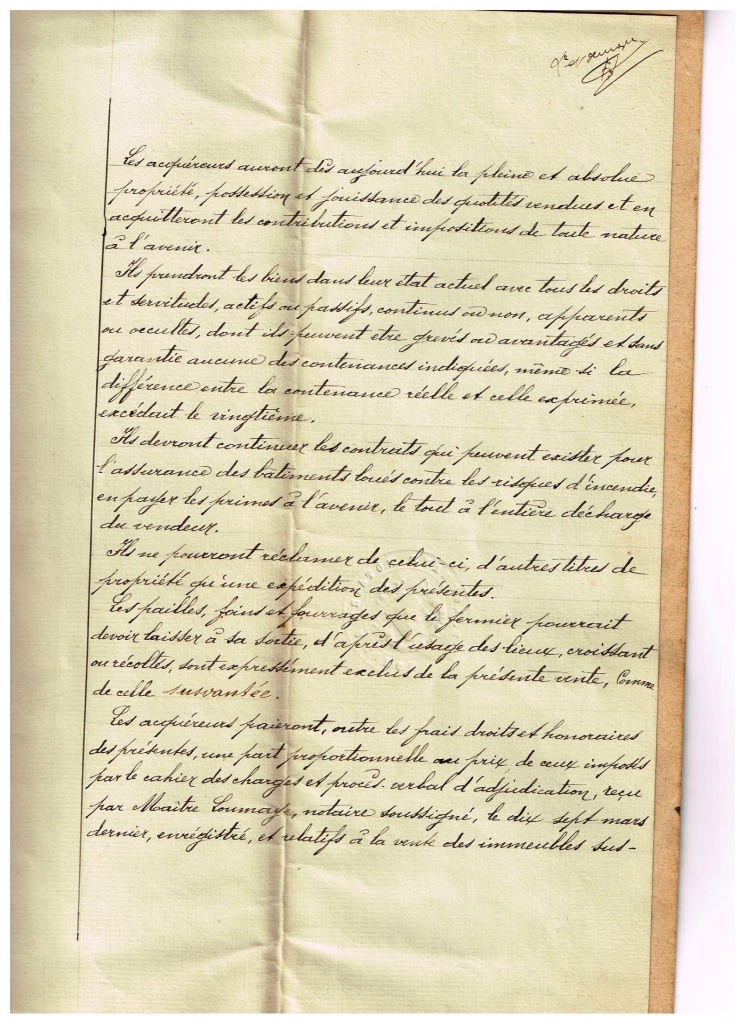 Les acquéreurs auront dès aujourd'hui la pleine et absolue
propriété, possession et jouissance des quotités vendues et en
acquitteront les contributions et impositions de toute nature
à l'avenir.
Ils prendront les biens dans leur état actuel avec tous les droits
et servitudes, actifs ou passifs, continus ou non, apparents
ou occultes, dont ils peuvent être grevés ou avantagés et sans
garantie aucune des contenances indiquées, même si la
différence entre la contenance réelle et celle exprimée,
excédait le vingtième.
Ils devront continuer les contrats qui peuvent exister pour
l'assurance des batiments loués contre les risques d'incendie,
en payer les primes à l'avenir, le tout à l'entière décharge
du vendeur.
Ils ne pourront réclamer de celui-ci, d'autres titres de
propriété qu'une expédition des présentes.
Les pailles, foins et fourrages que le fermier pourrait
devoir laisser à sa sortie, d'après l'usage des lieux, croissant
ou récoltés, sont expressément exclus de la présente vente, Comme
de celle susvantée.
Les acquéreurs paieront, outre les frais droits et honoraires
des présentes, une part proportionnelle au prix de ceux imposés
par le cahier des charges et procès-verbal d'adjudication, reçu
par Maître Loumaye, notaire soussigné, le dix sept mars
dernier, enrégistré, et relatifs à la vente des immeubles sus-